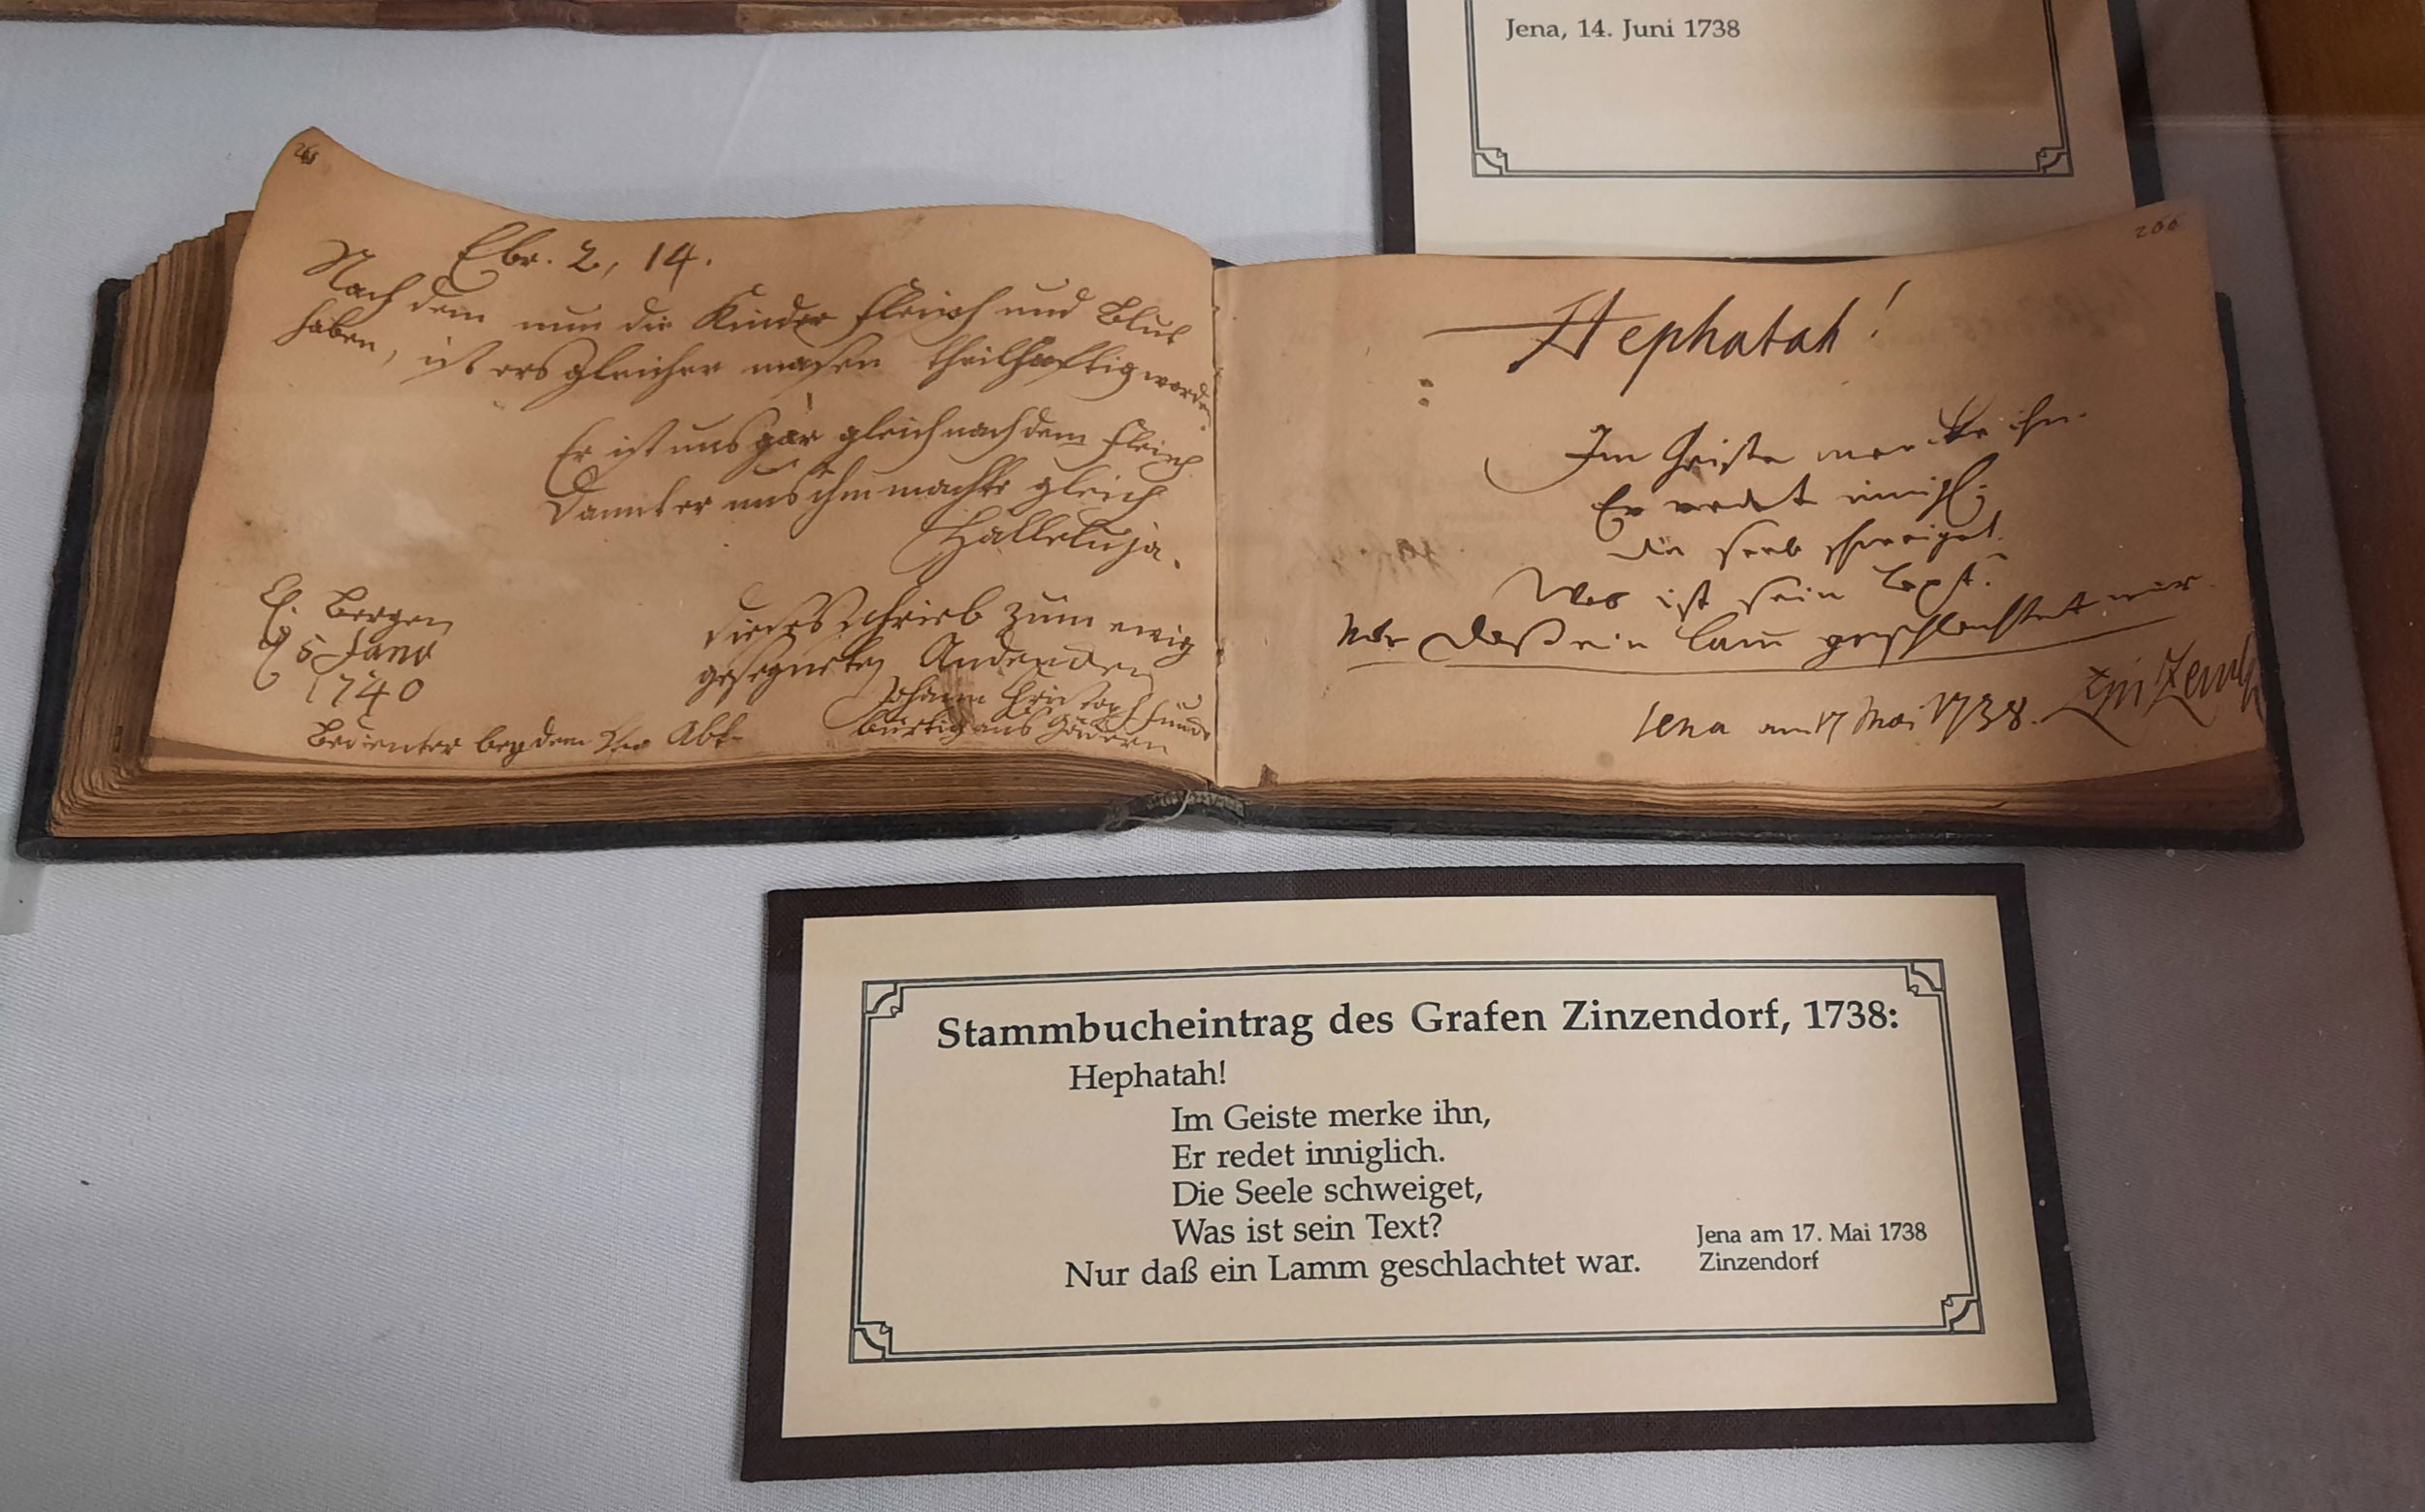 Jena, 14. Juni 1738
Ebr. 2, 14.
Nach dem nun die Kinder fleisch und Blut
haben, ist ers gleicher masen theilhafftig worden
Er ist uns gar gleich nach dem fleisch
Damit er uns ihm machte gleich
Halleluja.
Cl. Bergen
d 5 Janr
1740
dieses schrieb zum ewig
gesegneten Andencken
Johann Christoph
bürtig aus
Bedienter bey dem Abt
266
Hephatah!
Im Geiste mercke ihn.
Er redet innigl.
die seele schweiget.
Was ist sein Text?
Nur daß ein lam̅ geschlachtet war.
Jena am 17 Mai 1738. Zinzendorf
Stammbucheintrag des Grafen Zinzendorf, 1738:
Hephatah!
Im Geiste merke ihn,
Er redet inniglich.
Die Seele schweiget,
Was ist sein Text?
Nur daß ein Lamm geschlachtet war.
Jena am 17. Mai 1738
Zinzendorf